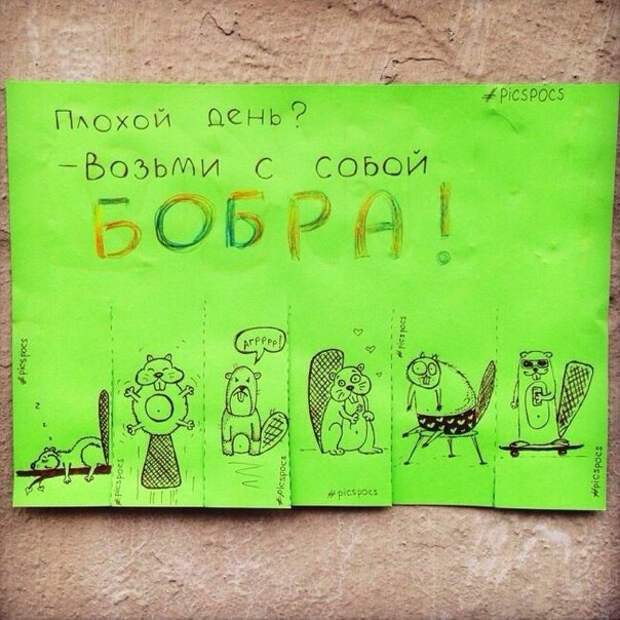 #PICSPOCS
Плохой день?
–Возьми с собой
БОБРА!
#picspocs
z z
#picspocs
АГРРРР!
#picspocs
#picspocs
#picspocs
#picspocs